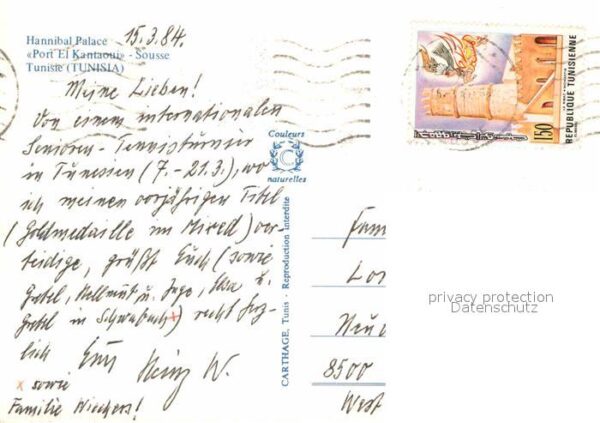 Hannibal Palace
«Port El Kantaoui» - Sousse
Tunisie (TUNISIA)
15.3.84.
Meine Lieben!
Von einem internationalen
Senioren-Tennisturnier
in Tunesien (7.-21.3.), wo
ich meinen vorjährigen Titel
(Goldmedaille im Mixed) ver-
teidige, grüßt Euch (sowie
Gretel, Hellmut u. Inge, Elsa u.
Gretel in Schwabach x) recht herz-
lich Euer Heinz W.
x sowie
Familie Wiechers!
Couleurs
C
naturelles
CARTHAGE, Tunis - Reproduction interdite
REPUBLIQUE TUNISIENNE
150
Fam
Lo
8500
West
privacy protection
Datenschutz